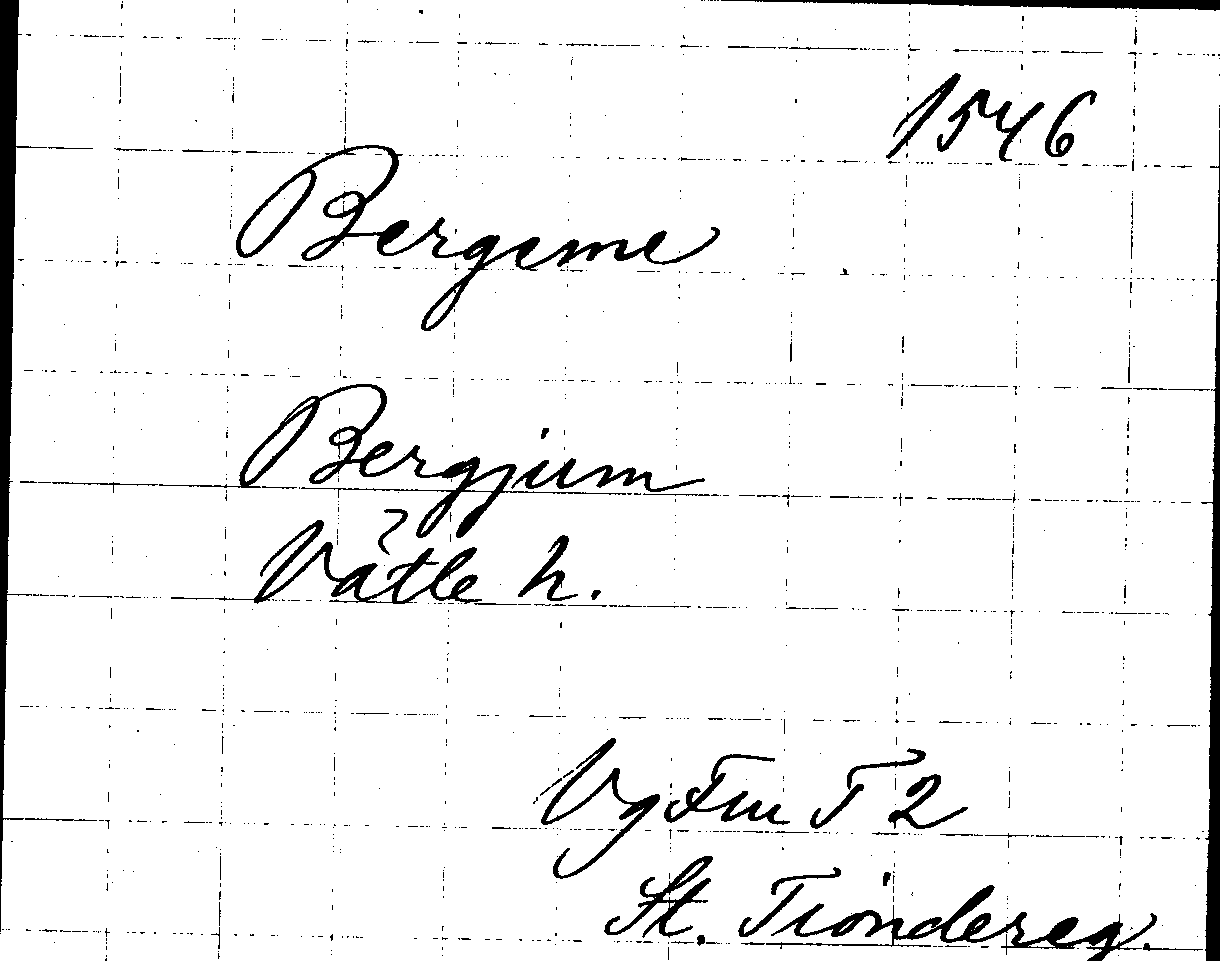 1546
Bergeme
Bergjum
Vätle h.
Vg Fm T 2
St. Tiondereg.